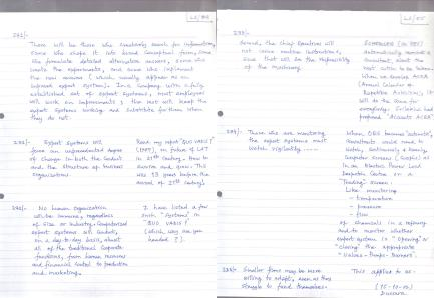 291/-
There will be those who
some who shape it into broad conceptual form, some
who formulate detailed alternative answers, some who
create the experiments, and some who implement
the new answers (which usually appear as an
improved expert system). In a Company with a fully
established set of expert systems, most employees
will work on improvements; the rest will keep the
expert systems working and substitute for them when
they do not.
292/- Expert systems will
force an unprecedented degree
of change in both the conduct
and the structure of business
organizations.
Read my report "QUO VADIS?"
on future of L&T
in 21st Century - How to
survive and grow. This
was 13 years before the
arrival of 21st Century.
293/- No human organization
will be immune, regardless
of size or industry. Computerized
expert systems will conduct,
on a day-to-day basis, almost
all of the traditional Corporate
functions, from human resource
and financial control to production
and marketing.
I have listed a few
such "Systems" in
"QUO VADIS?"
(which way are you
headed ?).
the Chief Executive will
not issue routine instructions,
since that will be the responsibility
of the machinery.
automatically reminds a
consultant, about the
next action to be taken
when we develop ACRA
(Annual Calendar of
Repetitive Actions), it
will do the same for
everybody.
294/- Those who are monitoring
the expert systems must
watch vigilantly
When becomes "automatic",
consultants would need to
watch, continuously & keenly,
Computer Screens (Graphic) as
in an Electric Power Load
Despatch Centre or a
"Trading" screen.
Like monitoring
- temperature
- pressure
- flow
of chemicals in a refinery
and to monitor whether
expert system is "Opening" or
"Closing" the appropriate
"Valves - Pumps - Burners".
Smaller firms may be more
willing to adapt, even as they
struggle to feed themselves.
This applies to us.